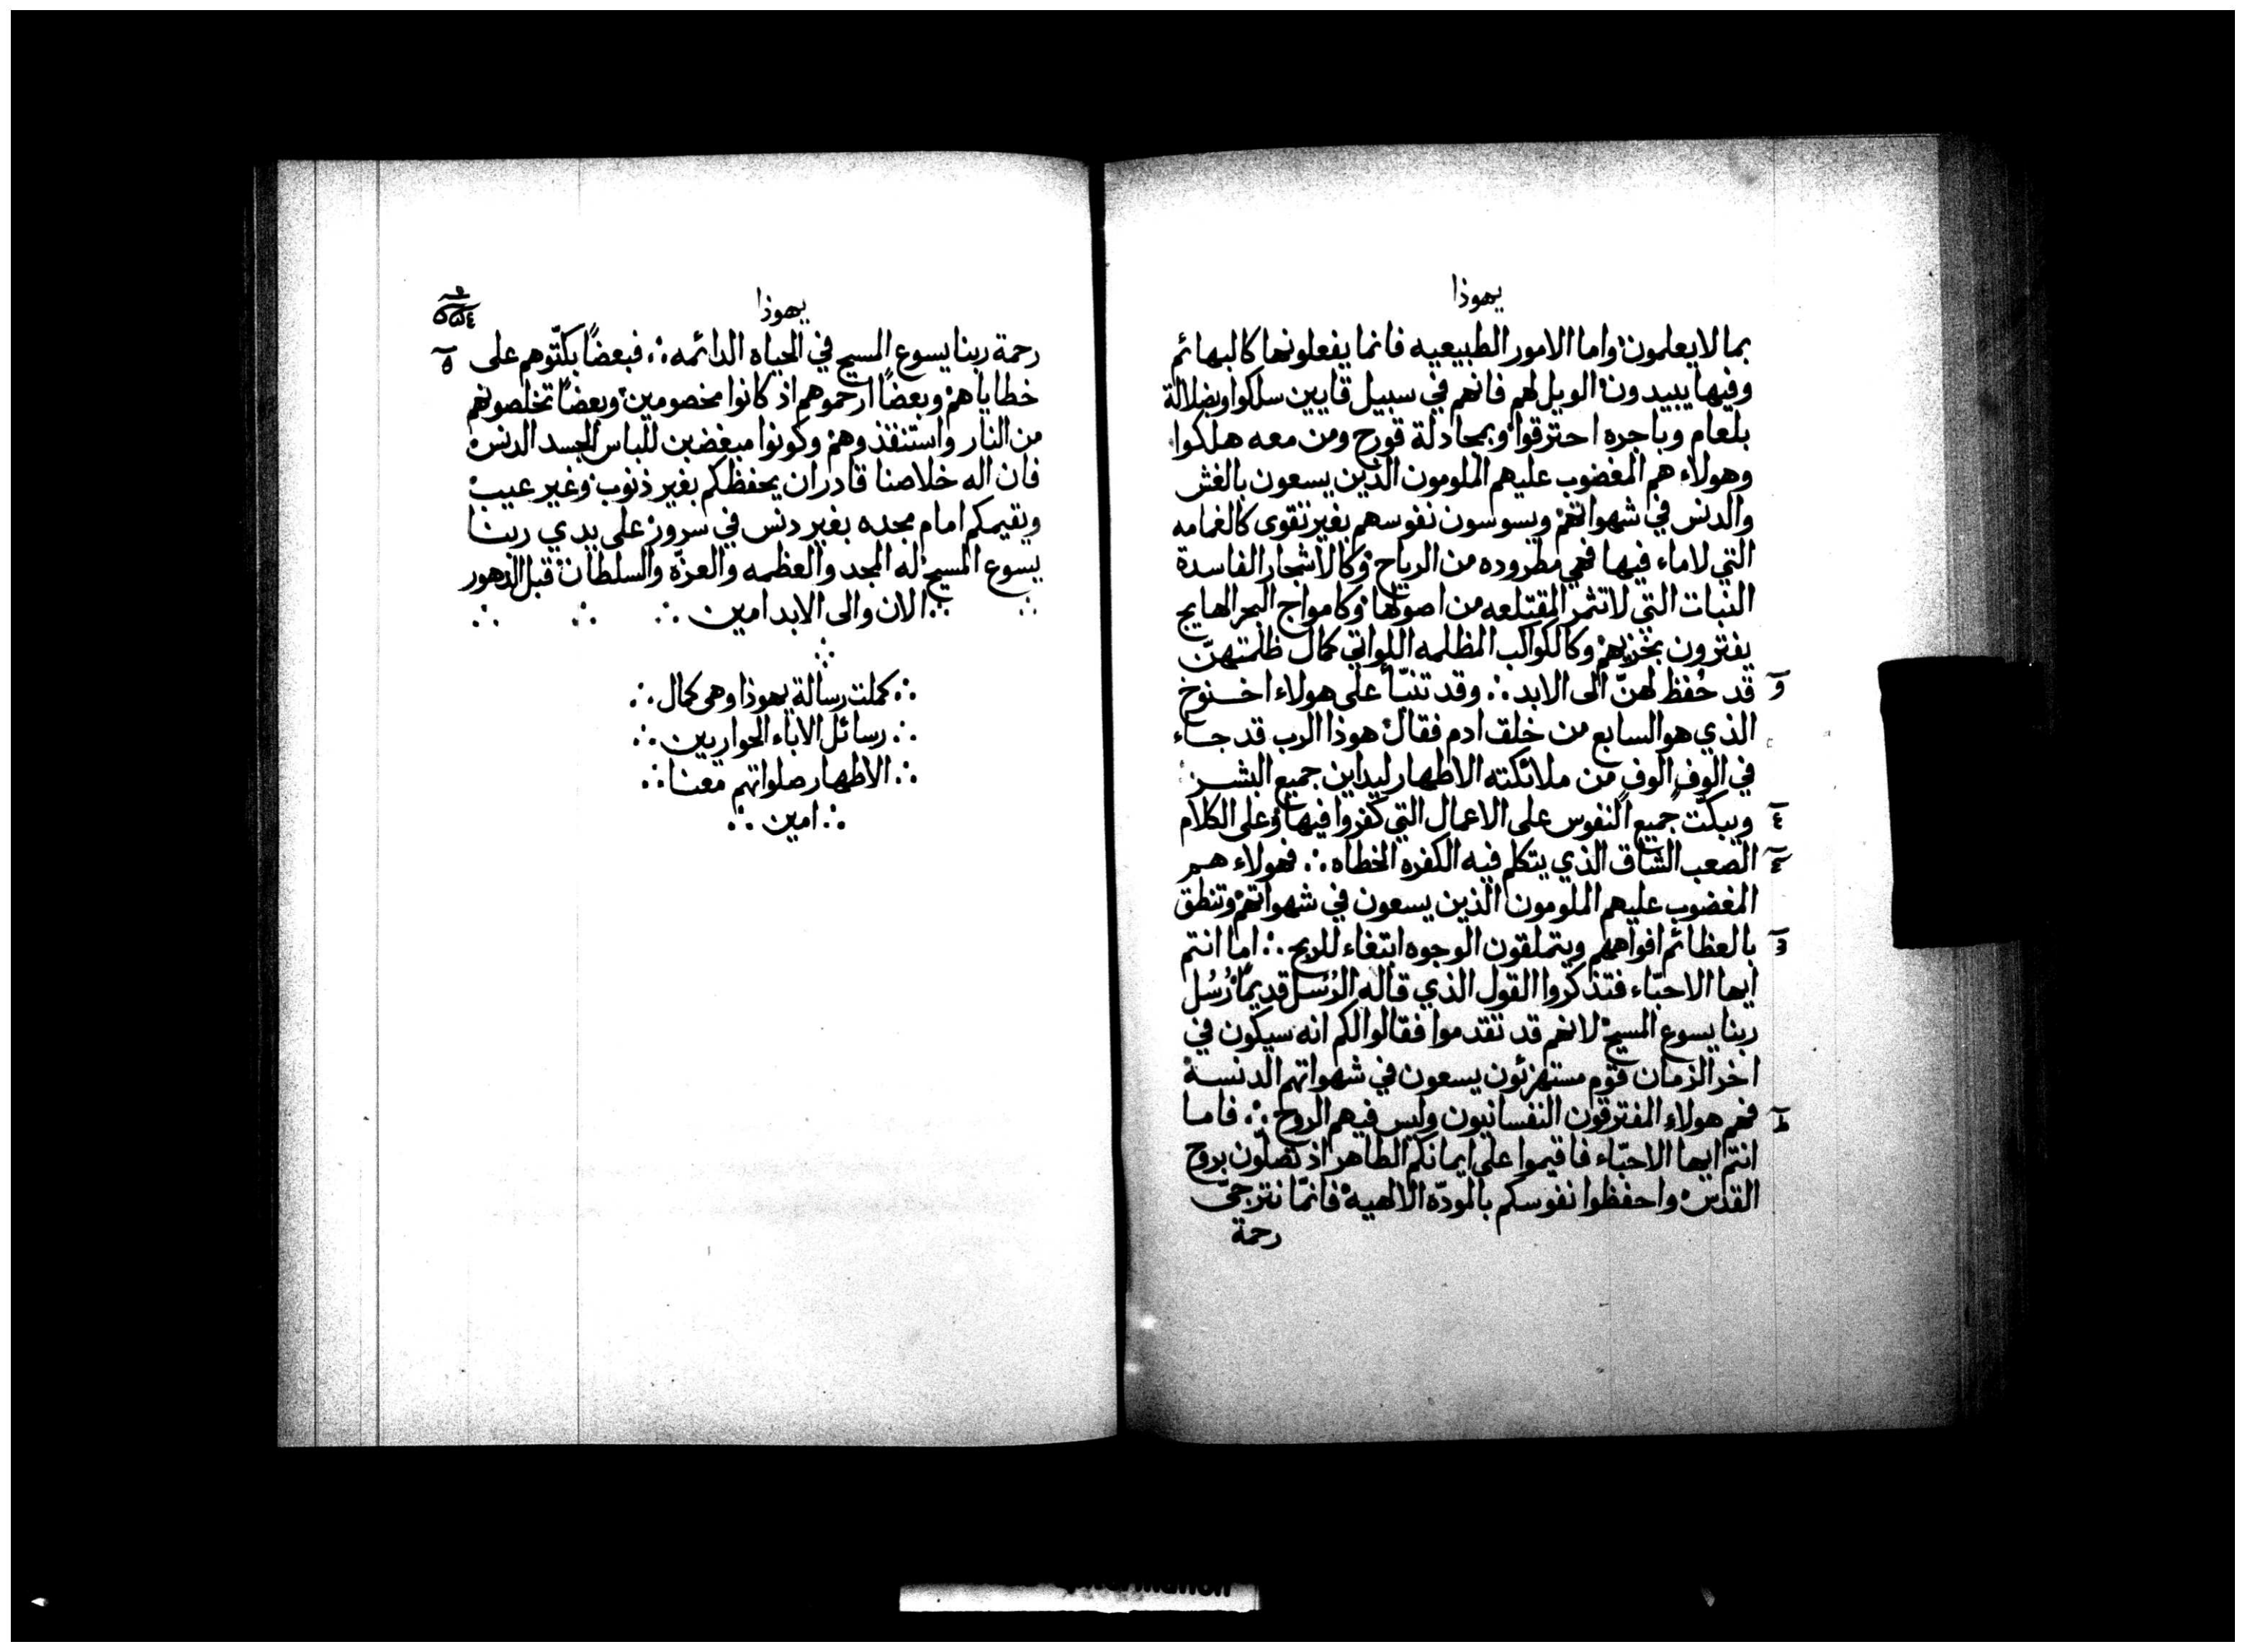 يهوذا
بما لا يعلمون واما الامور الطبيعيه فانما يفعلونها كالبهائم
وفيها يبيدون الويل لهم فانهم في سبيل قايين سلكوا وبضلالة
بلعام وباجره احترقوا وبمجادلة قورح ومن معه هلكوا
وهولاء هم المغضوب عليهم الملومون الذين يسعون بالغش
والدنس في شهواتهم ويسوسون نفوسهم بغير تقوى كالغمامه
التي لا ماء فيها فهي مطروده من الرياح وكالاشجار الفاسدة
النبات التي لا تثمر المقتلعه من اصولها وكامواج البحر الهايج
يفترون بخزيهم وكالكواكب المظلمه اللواتي كمال ظلمتهنّ
قد حُفظ لهنّ الى الابد ∴ وقد تنبّأ على هولاء اخنوخ
الذي هو السابع من خلق ادم فقال هوذا الرب قد جاء
في الوف الوف من ملائكته الاطهار ليداين جميع البشر
ويبكّت جميع النفوس على الاعمال التي كفروا فيها وعلى الكلام
الصعب الشاق الذي يتكلم فيه الكفره الخطاه ∴ فهولاء هم
المغضوب عليهم الملومون الذين يسعون في شهواتهم وتنطق
بالعظائم افواههم ويتملقون الوجوه ابتغاء للربح ∴ اما انتم
ايها الاحبّاء فتذكروا القول الذي قاله الرُسُل قديمًا رُسُل
ربنا يسوع المسيح لانهم قد تقدموا فقالوا لكم انه سيكون في
اخر الزمان قوم مستهزئون يسعون في شهواتهم الدنسة
فهم هولاء المفترقون النفسانيون وليس فيهم الروح ∴ فاما
انتم ايها الاحبّاء فاقيموا على ايمانكم الطاهر اذ تصلّون بروح
القدس واحفظوا نفوسكم بالمودّه الالهية فانمّا نترجىّ
رحمة
يهوذا
رحمة ربنا يسوع المسيح في الحياه الدائمه ∴ فبعضًا بكتّوهم على
خطاياهم وبعضًا ارحموهم اذ كانوا مخصومين وبعضًا تخلصونهم
من النار واستنقذوهم وكونوا مبغضين للباس الجسد الدنس
فان اله خلاصنا قادر ان يحفظكم بغير ذنوب وغير عيب
ويقيمكم امام مجده بغير دنس في سرور على يدي ربنا
يسوع المسيح له المجد والعظمه والعزّه والسلطان قبل الدهور
∴ الان والى الابد امين ∴
∴ كملت رسالة يهوذا وهى كمال ∴
∴ رسائل الاباء الحواريين ∴
∴ الاطهار صلواتهم معنا ∴
∴ امين ∴